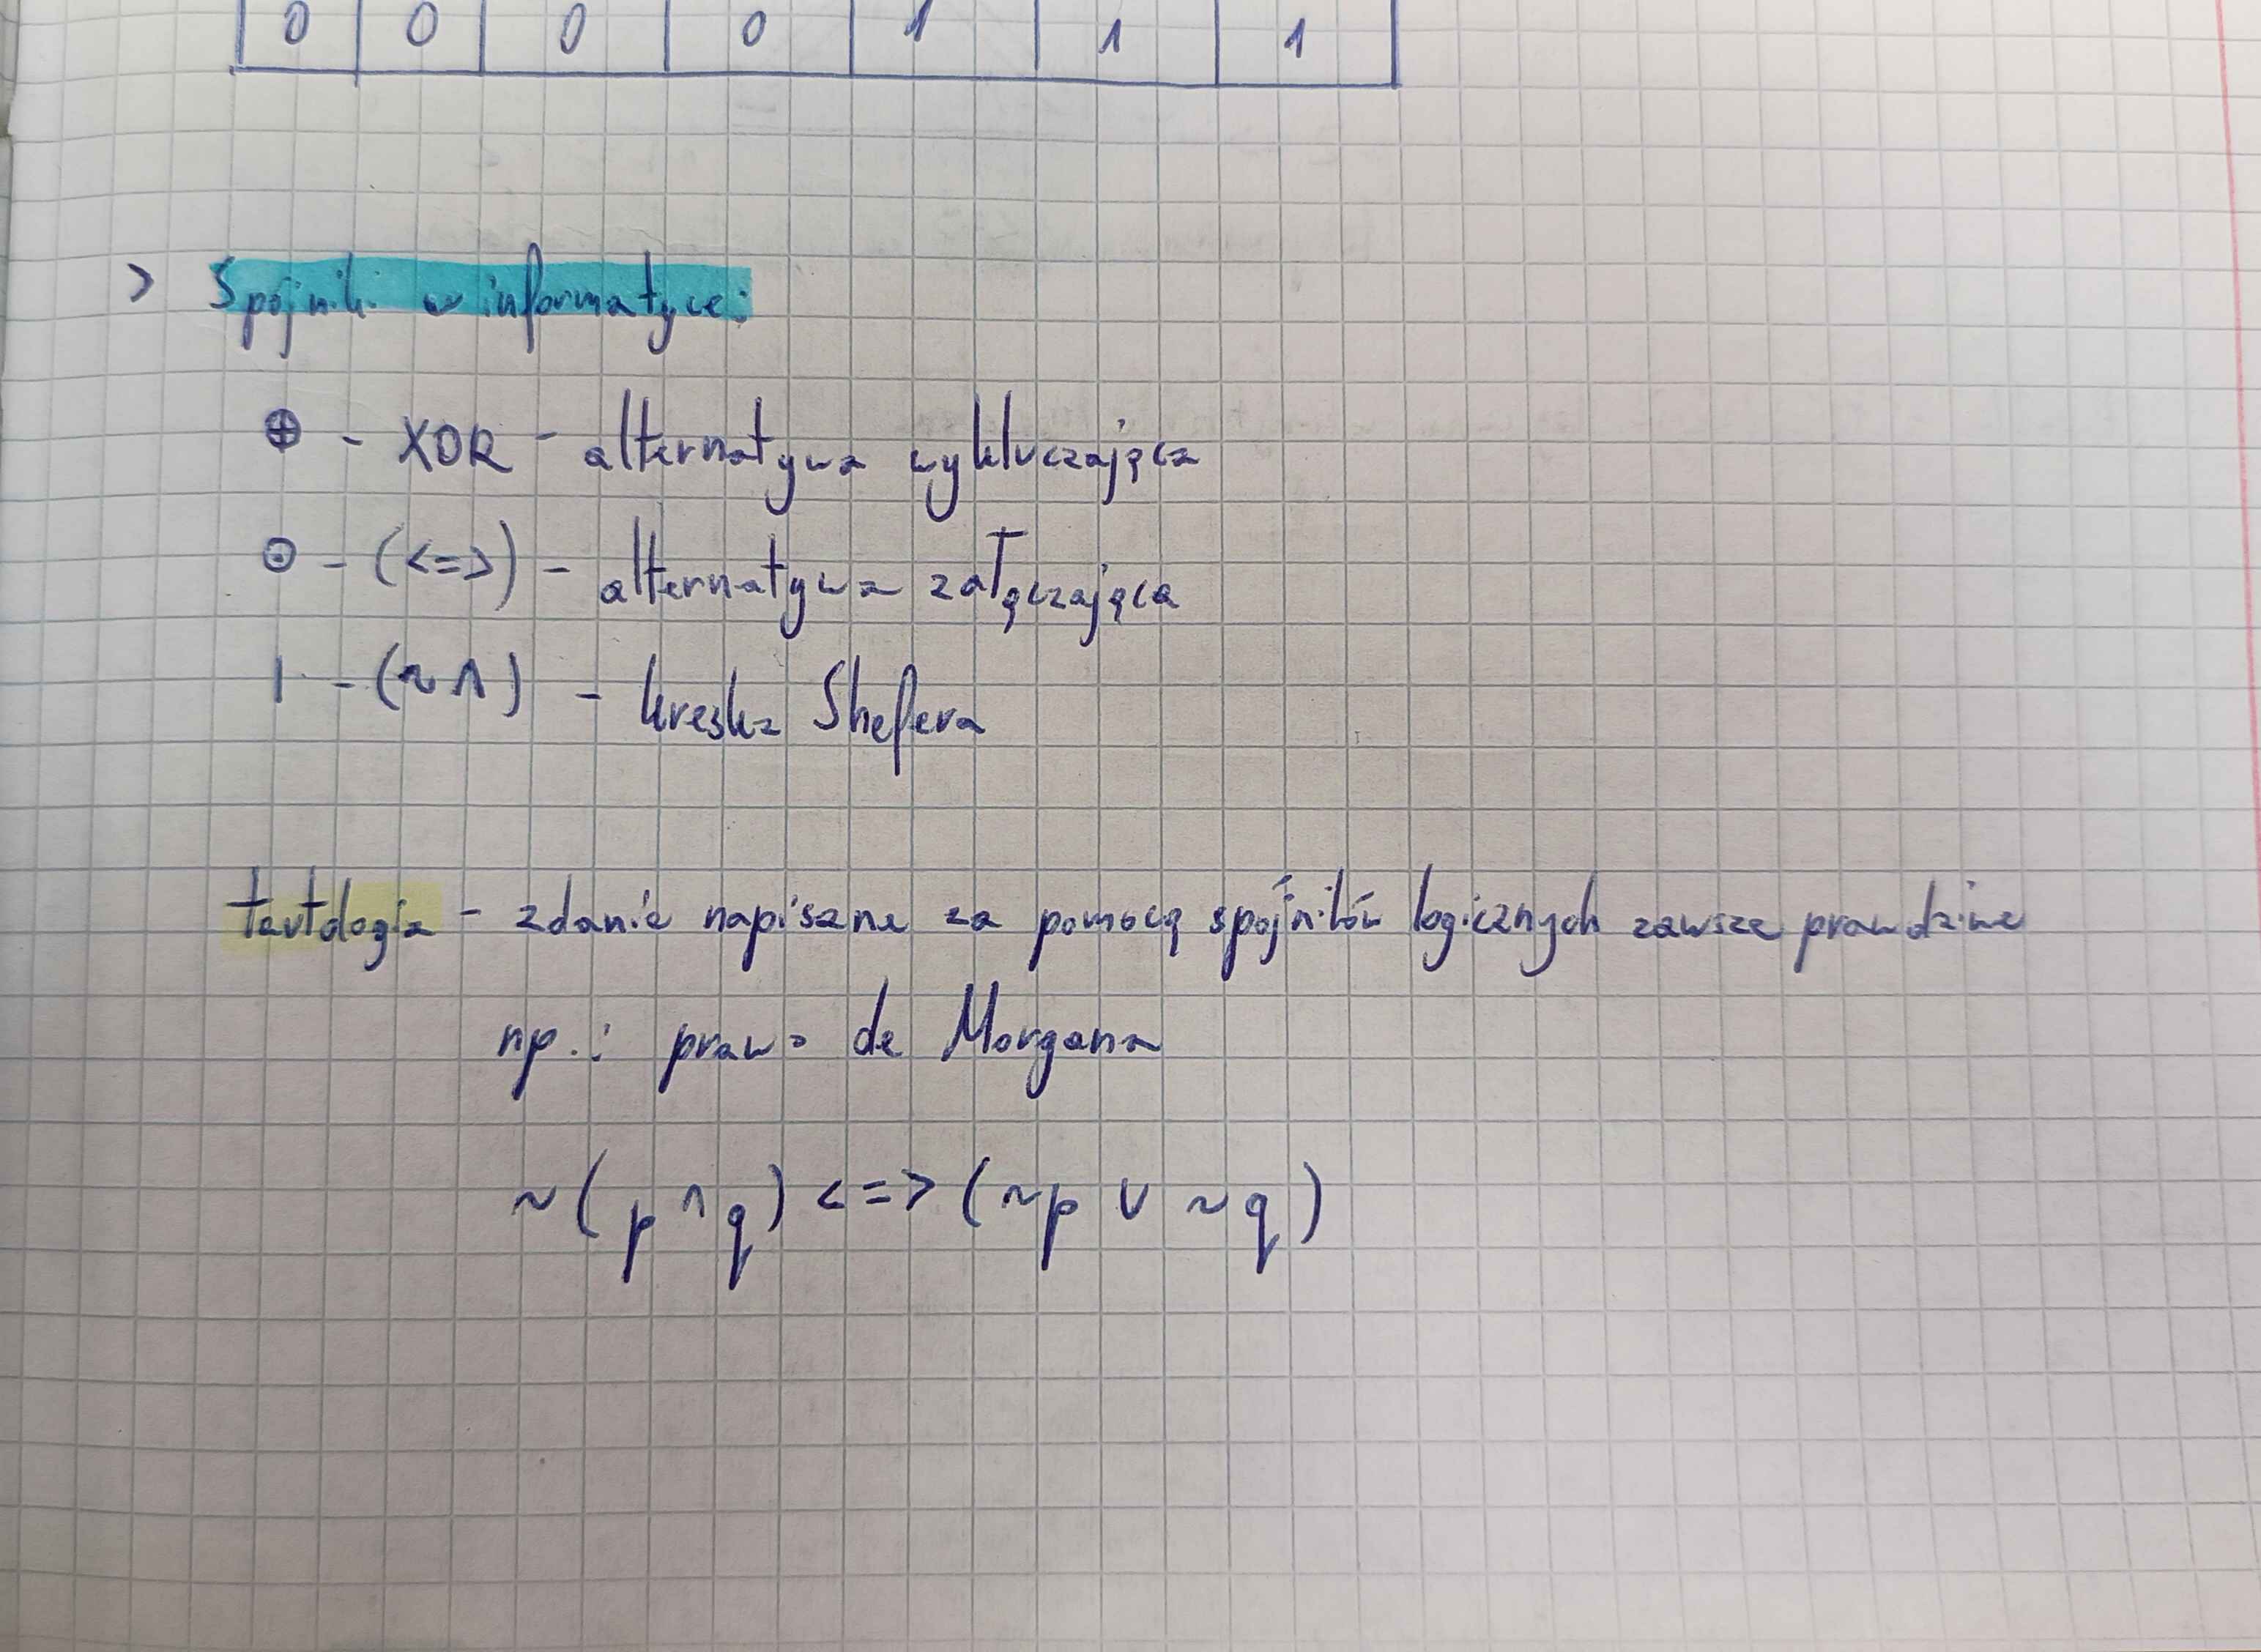 0 0 0 0 1 1 1
> Spójniki w informatyce:
⊕ - XOR - alternatywa wykluczająca
⊙ - (<=>) - alternatywa załączająca
| - (~∧) - kreska Shefera
tautologia - zdanie napisane za pomocą spójników logicznych zawsze prawdziwe
np.: prawo de Morgana
~(p ∧ q) <=> (~p ∨ ~q)